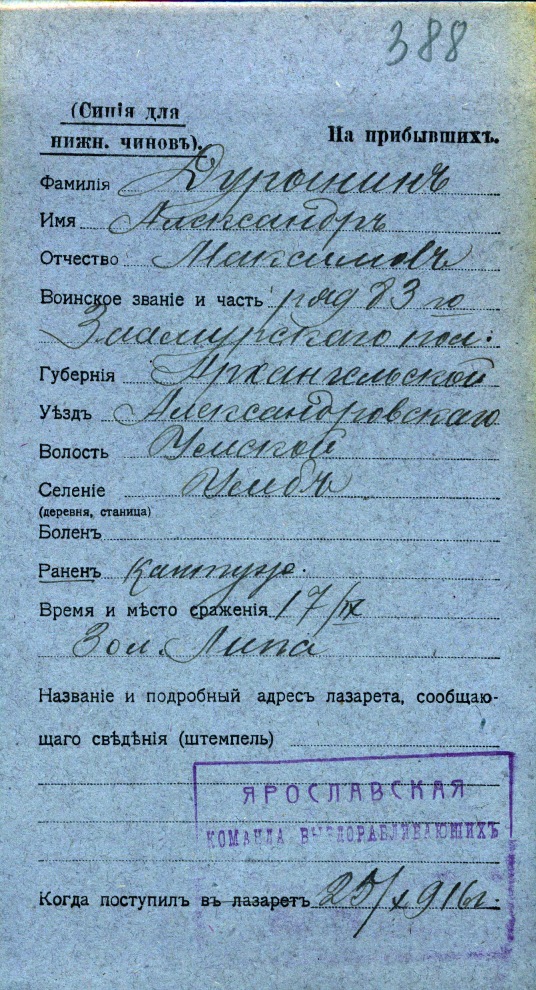 388
(Синія для
нижн. чиновъ).
На прибывшихъ.
Фамилія Дурынинъ
Имя Александръ
Отчество Максимовъ
Воинское званіе и часть ряд 83 го
Заамурскаго пол.
Губернія Архангельской
Уѣздъ Александровскаго
Волость Умской
Селеніе Умбѣ
(деревня, станица)
Боленъ
Раненъ контужо.
Время и мѣсто сраженія 17/IX
Зол. Липа
Названіе и подробный адресъ лазарета, сообщаю-
щаго свѣдѣнія (штемпель)
ЯРОСЛАВСКАЯ
КОМАНДА ВЫЗДОРАВЛИВАЮЩИХЪ
Когда поступилъ въ лазаретъ 25/X 916 г.